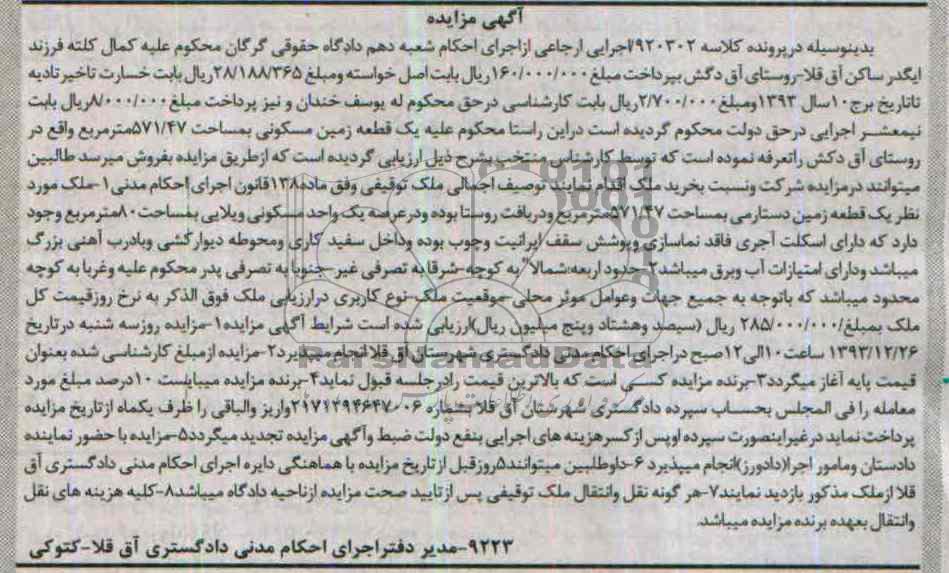 آگهی مزایده
بدینوسیله درپرونده کلاسه ۹۲۰۳۰۲/اجرایی ارجاعی ازاجرای احکام شعبه دهم دادگاه حقوقی گرگان محکوم علیه کمال کلته فرزند
ایگدر ساکن آق قلا-روستای آق دگش بپرداخت مبلغ ۱۶۰/۰۰۰/۰۰۰ ریال بابت اصل خواسته ومبلغ ۲۸/۱۸۸/۳۶۵ ریال بابت خسارت تاخیر تادیه
تاتاریخ برج ۱۰ سال ۱۳۹۳ ومبلغ ۲/۷۰۰/۰۰۰ ریال بابت کارشناسی درحق محکوم له یوسف خندان و نیز پرداخت مبلغ ۸/۰۰۰/۰۰۰ ریال بابت
نیمعشر اجرایی درحق دولت محکوم گردیده است دراین راستا محکوم علیه یک قطعه زمین مسکونی بمساحت ۵۷۱/۴۷ مترمربع واقع در
روستای آق دکش راتعرفه نموده است که توسط کارشناس منتخب بشرح ذیل ارزیابی گردیده است که ازطریق مزایده بفروش میرسد طالبین
میتوانند درمزایده شرکت ونسبت بخرید ملک اقدام نمایند توصیف اجمالی ملک توقیفی وفق ماده ۱۳۸ قانون اجرای احکام مدنی ۱-ملک مورد
نظر یک قطعه زمین دستارمی بمساحت ۵۷۱/۴۷ مترمربع ودربافت روستا بوده ودرعرصه یک واحد مسکونی ویلایی بمساحت ۸۰ مترمربع وجود
دارد که دارای اسکلت آجری فاقد نماسازی وپوشش سقف ایرانیت وچوب بوده وداخل سفید کاری ومحوطه دیوارکشی وبادرب آهنی بزرگ
میباشد ودارای امتیازات آب وبرق میباشد ۲-حدود اربعه:شمالا" به کوچه-شرقا به تصرفی غیر-جنوبا به تصرفی پدر محکوم علیه وغربا به کوچه
محدود میباشد که باتوجه به جمیع جهات وعوامل موثر محلی-موقعیت ملک-نوع کاربری درارزیابی ملک فوق الذکر به نرخ روزقیمت کل
ملک بمبلغ/۲۸۵/۰۰۰/۰۰۰ ریال (سیصد وهشتاد وپنج میلیون ریال)ارزیابی شده است شرایط آگهی مزایده ۱-مزایده روزسه شنبه درتاریخ
۱۳۹۳/۱۲/۲۶ ساعت ۱۰الی ۱۲صبح دراجرای احکام مدنی دادگستری شهرستان آق قلا انجام میپذیرد ۲-مزایده ازمبلغ کارشناسی شده بعنوان
قیمت پایه آغاز میگردد ۳-برنده مزایده کسی است که بالاترین قیمت رادرجلسه قبول نماید ۴-برنده مزایده میبایست ۱۰درصد مبلغ مورد
معامله را فی المجلس بحساب سپرده دادگستری شهرستان آق قلا بشماره ۲۱۷۱۲۹۴۶۴۷۰۰۶ واریز والباقی را ظرف یکماه ازتاریخ مزایده
پرداخت نماید درغیراینصورت سپرده اوپس از کسر هزینه های اجرایی بنفع دولت ضبط وآگهی مزایده تجدید میگردد ۵-مزایده با حضور نماینده
دادستان ومامور اجرا(دادورز)انجام میپذیرد ۶-داوطلبین میتوانند ۵روزقبل ازتاریخ مزایده با هماهنگی دایره اجرای احکام مدنی دادگستری آق
قلا ازملک مذکور بازدید نمایند ۷-هر گونه نقل وانتقال ملک توقیفی پس ازتایید صحت مزایده ازناحیه دادگاه میباشد ۸-کلیه هزینه های نقل
وانتقال بعهده برنده مزایده میباشد.
۹۲۲۳-مدیر دفتراجرای احکام مدنی دادگستری آق قلا-کتوکی
ParsNamadData